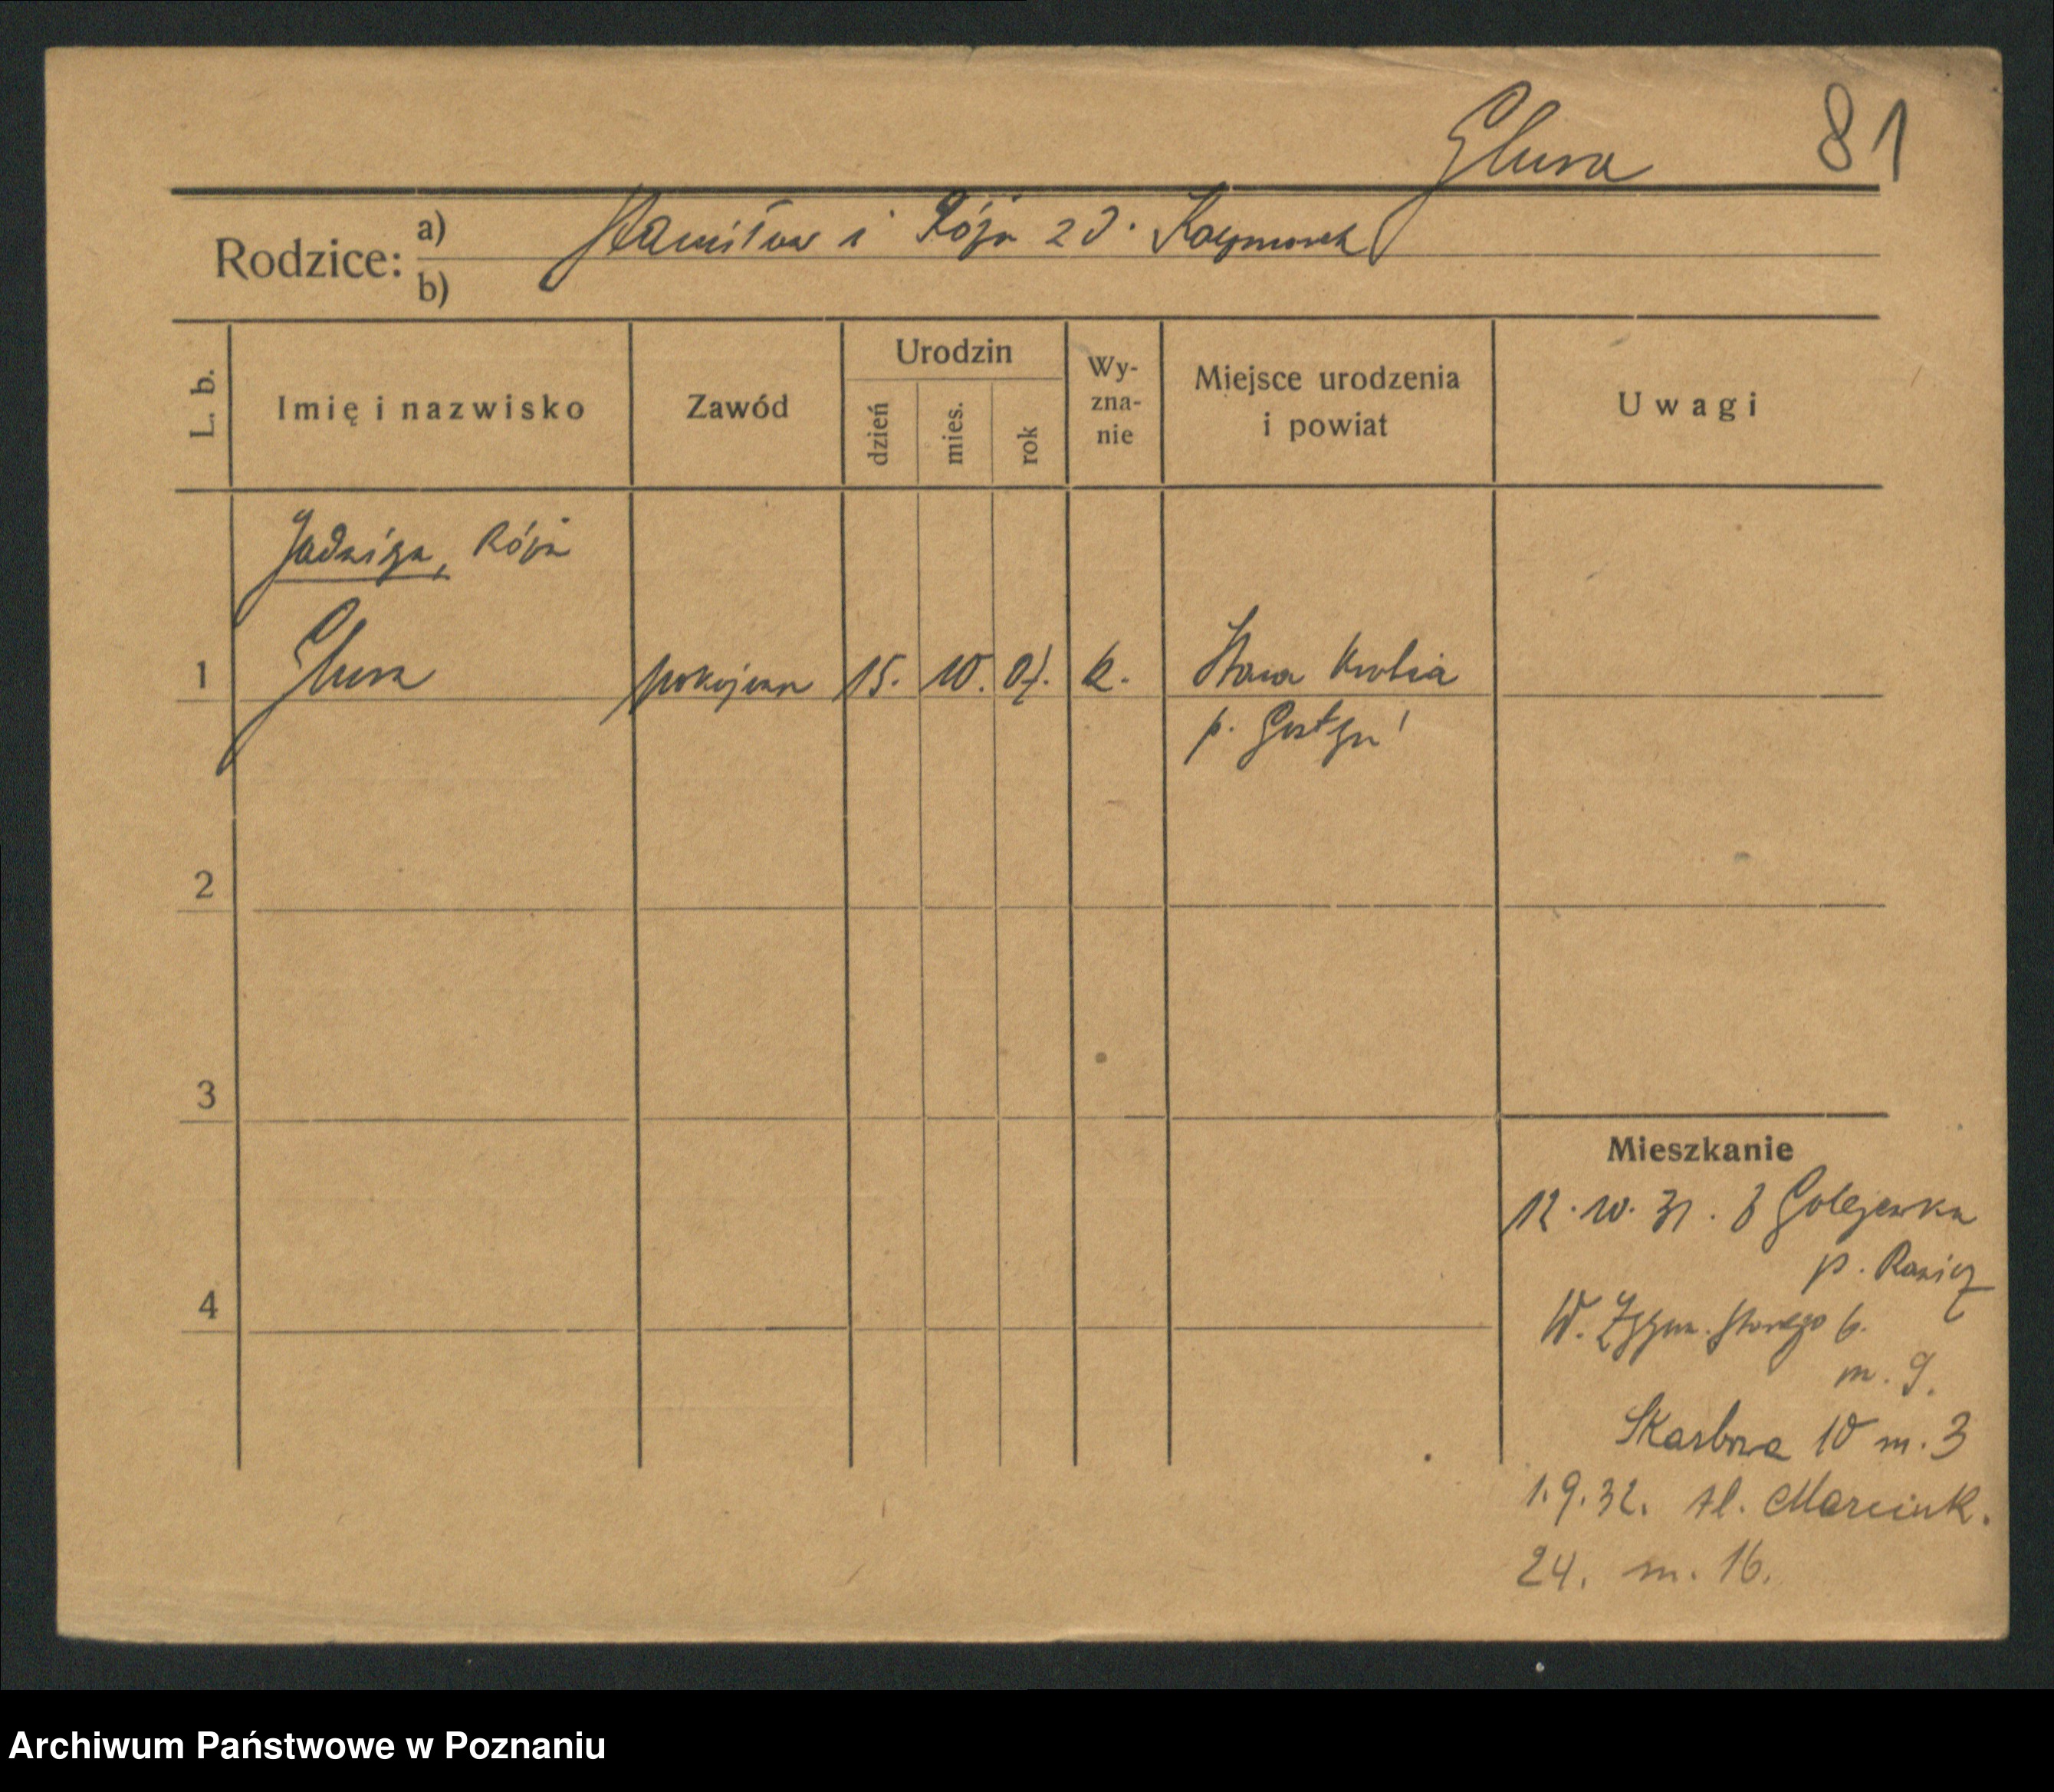 Glura 81
Rodzice: a) Stanisław i Róża zd. Kaczmarek
b)
L. b.
Imię i nazwisko
Zawód
Urodzin
dzień
mies.
rok
Wy-
zna-
nie
Miejsce urodzenia
i powiat
Uwagi
Jadwiga, Róża
1 Glura pokojowa 15. 10. 07. k. Stara Krobia
p. Gostyń
2
3
4
Mieszkanie
12. 10. 31. z Golejewka
p. Rawicz
W. Zygm. Starego 6.
m. 9.
Skarbowa 10 m. 3
1. 9. 32. Al. Marcink.
24. m. 16.
Archiwum Państwowe w Poznaniu